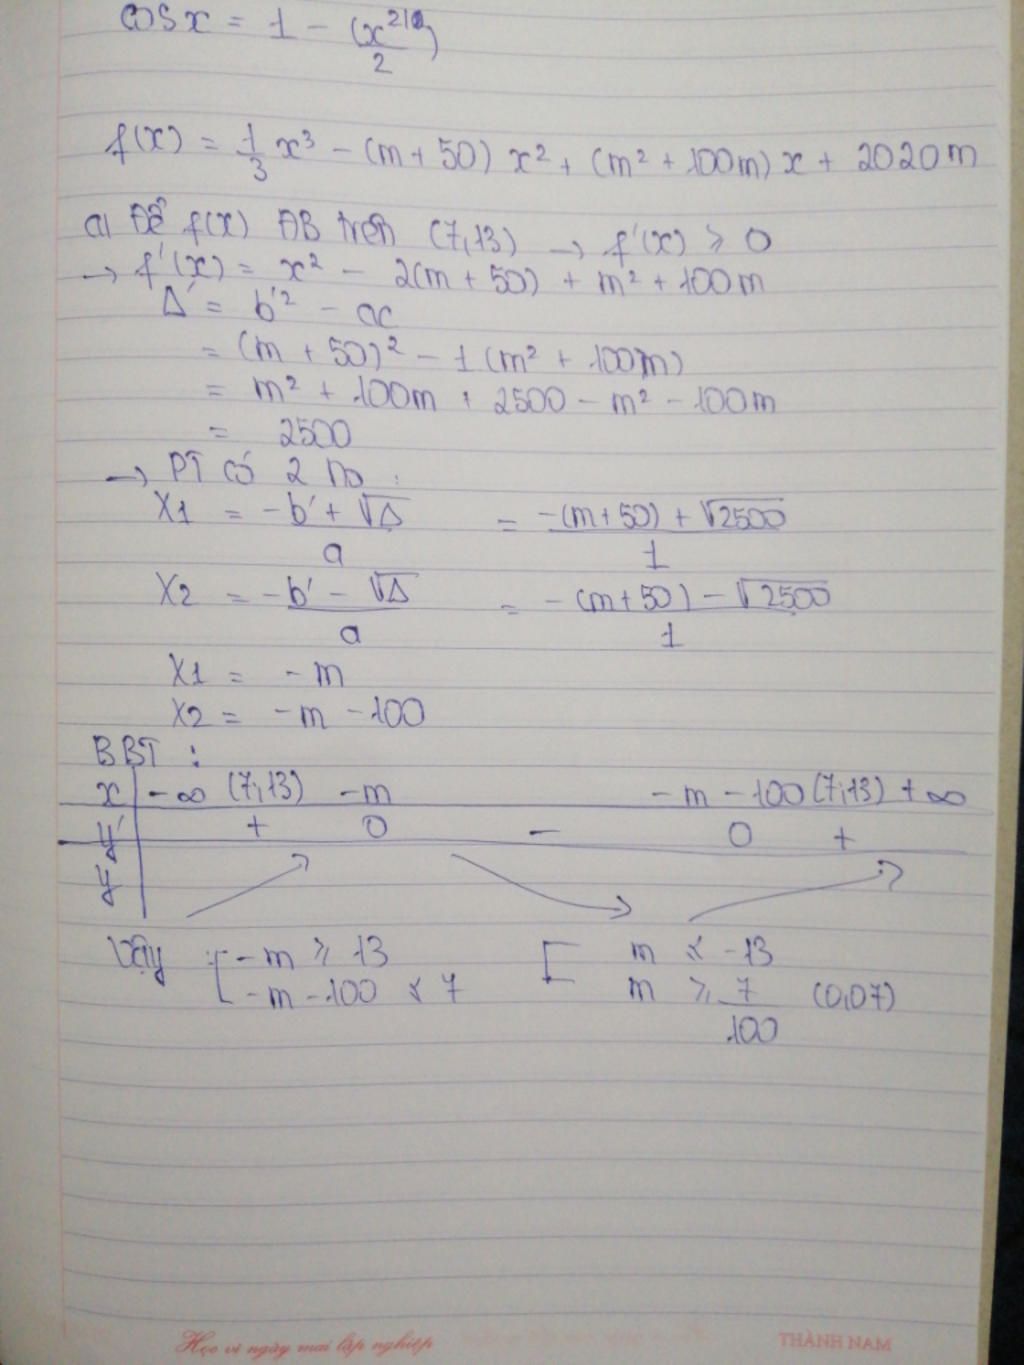 cos x = 1 - (x^2)/2
f(x) = 1/3 x³ - (m + 50) x² + (m² + 100m) x + 2020m
a) Để f(x) ĐB trên (7,13) → f'(x) ≥ 0
→ f'(x) = x² - 2(m + 50) + m² + 100m
Δ' = b'² - ac
= (m + 50)² - 1 (m² + 100m)
= m² + 100m + 2500 - m² - 100m
= 2500
→ PT có 2 no :
X1 = (-b' + √Δ)/a = (-(m+50) + √2500)/1
X2 = (-b' - √Δ)/a = (-(m+50) - √2500)/1
X1 = -m
X2 = -m - 100
BBT :
x | -∞ (7,13) -m -m - 100 (7,13) +∞
y' + 0 - 0 +
y
Vậy [ -m ≥ 13 [ m ≤ -13
-m - 100 ≤ 7 m ≥ 7/100 (0,07)
Học vì ngày mai lập nghiệp THÀNH NAM